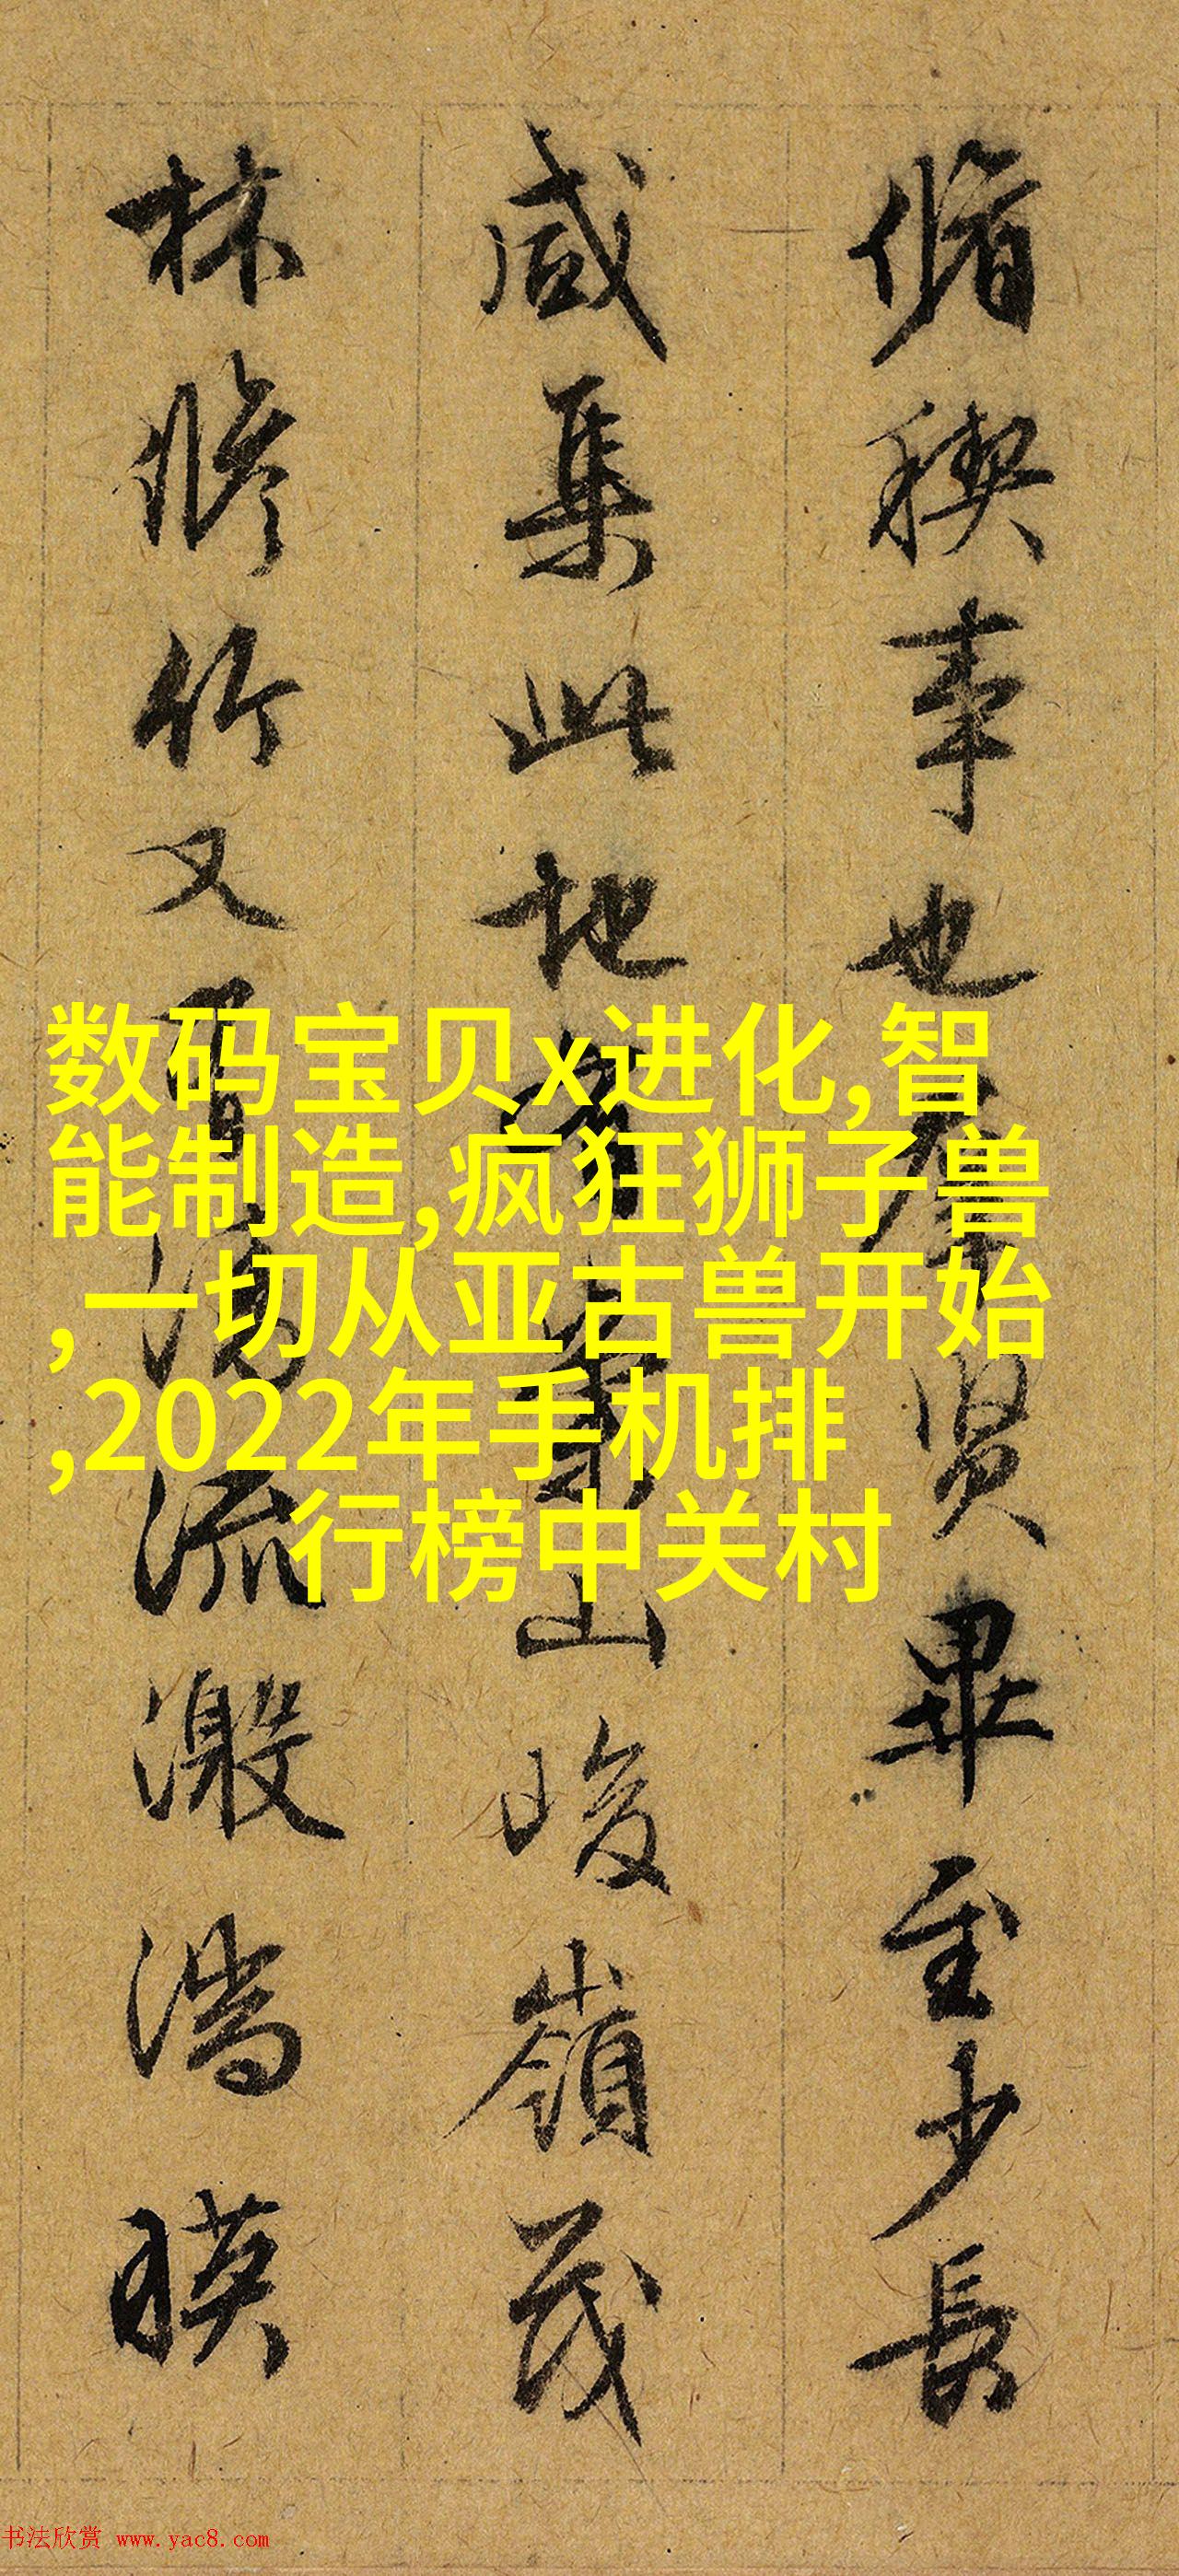 脩稧事也羣賢畢至少長
咸集此地有崇山峻嶺茂
林脩竹又有清流激湍暎
数码宝贝x进化,智
能制造,疯狂狮子兽
,一切从亚古兽开始
,2022年手机排
行榜中关村
书法欣赏 www.yac8.com